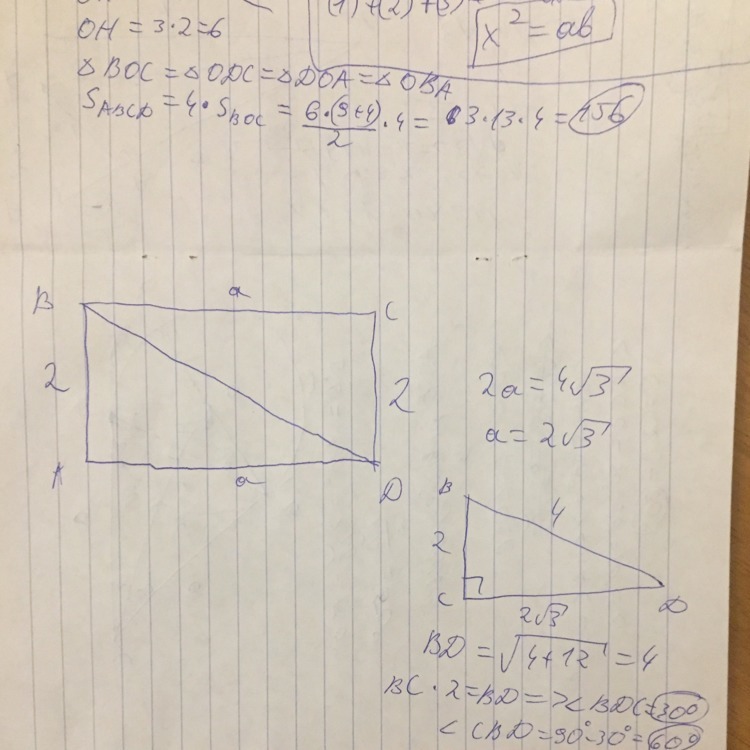 (1)+(2)+(3)
OH = 3·2=6
x² = ab
△BOC = △ODC = △DOA = △OBA
S_ABCD = 4·S_BOC = 6·(9+4)/2 · 4 = 3·13·4 = 156
B a C
2 2
A a D
2a = 4√3
a = 2√3
B 4
2
C 2√3 D
BD = √4+12 = 4
BC·2=BD => ∠BDC=30°
∠CBD=90°-30°=60°